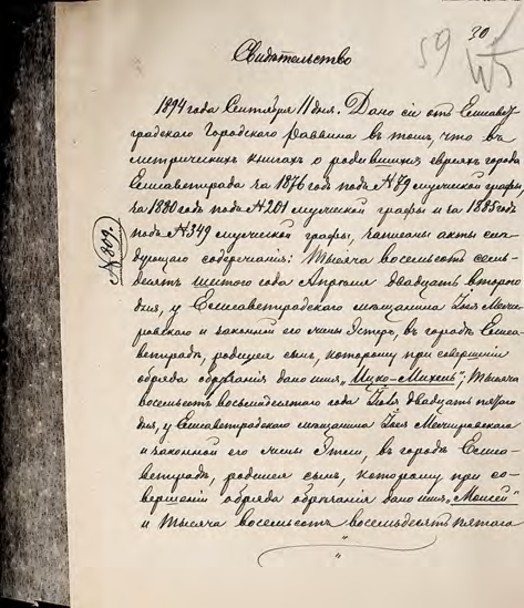 30
59
Свидѣтельство
1894 года Сентября 11 дня. Дано сіе отъ Елисавет-
градскаго Городского Раввина въ томъ, что въ
метрическихъ книгахъ о родившихся евреяхъ города
Елисаветграда за 1876 годъ подъ №79 мужской графы,
за 1880 годъ подъ №201 мужской графы и за 1885 годъ
подъ №349 мужской графы, записаны акты слѣ-
дующаго содержанія: Тысяча восемьсотъ семь-
десятъ шестого года Апрѣля двадцать второго
дня, у Елисаветградскаго мѣщанина
и законной его жены въ городѣ Елиса-
ветградѣ, родился сынъ, которому при совершеніи
обряда обрѣзанія дано имя „Ицко-Михель“; Тысяча
восемьсотъ восьмидесятаго года двадцать пятаго
дня, у Елисаветградскаго мѣщанина
и законной его жены въ городѣ Елиса-
ветградѣ, родился сынъ, которому при со-
вершеніи обряда обрѣзанія дано имя „Моисей“
и Тысяча восемьсотъ восемьдесятъ пятаго
№ 809.